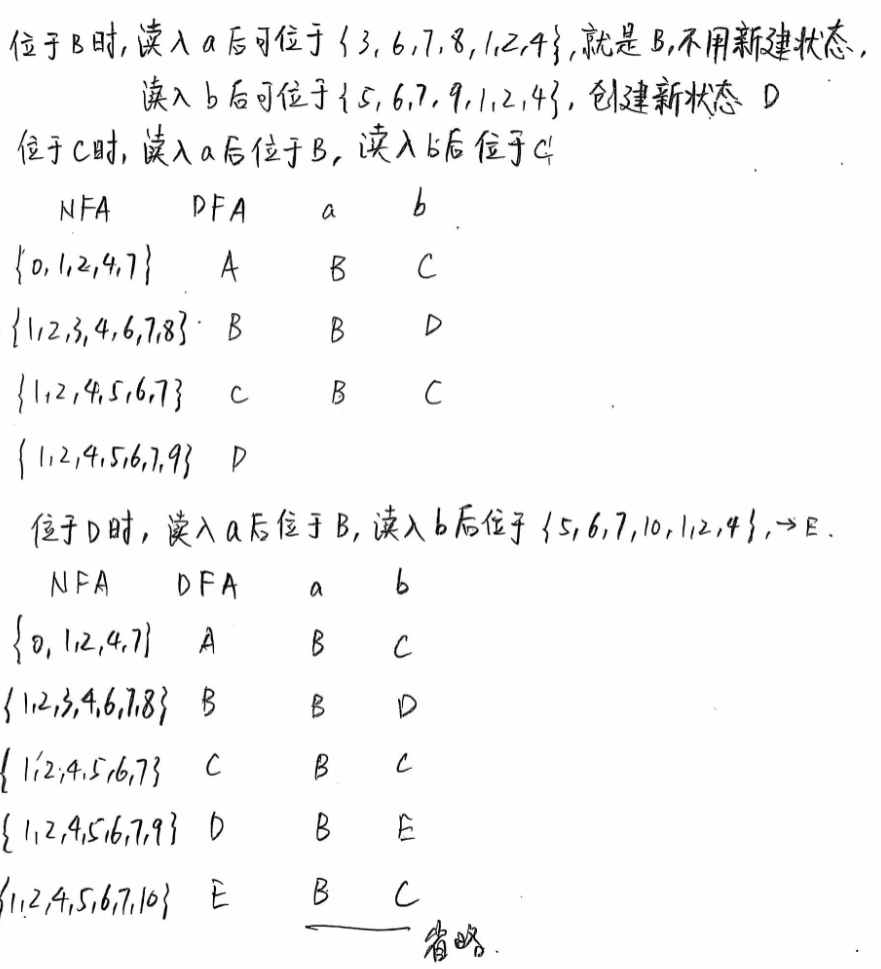 位于B时,读入a后可位于{3,6,7,8,1,2,4},就是B,不用新建状态,
读入b后可位于{5,6,7,9,1,2,4},创建新状态 D
位于C时,读入a后位于B,读入b后位于C
NFA DFA a b
{0,1,2,4,7} A B C
{1,2,3,4,6,7,8} B B D
{1,2,4,5,6,7} C B C
{1,2,4,5,6,7,9} D
位于D时,读入a后位于B,读入b后位于{5,6,7,10,1,2,4},→E.
NFA DFA a b
{0,1,2,4,7} A B C
{1,2,3,4,6,7,8} B B D
{1,2,4,5,6,7} C B C
{1,2,4,5,6,7,9} D B E
{1,2,4,5,6,7,10} E B C
省略.